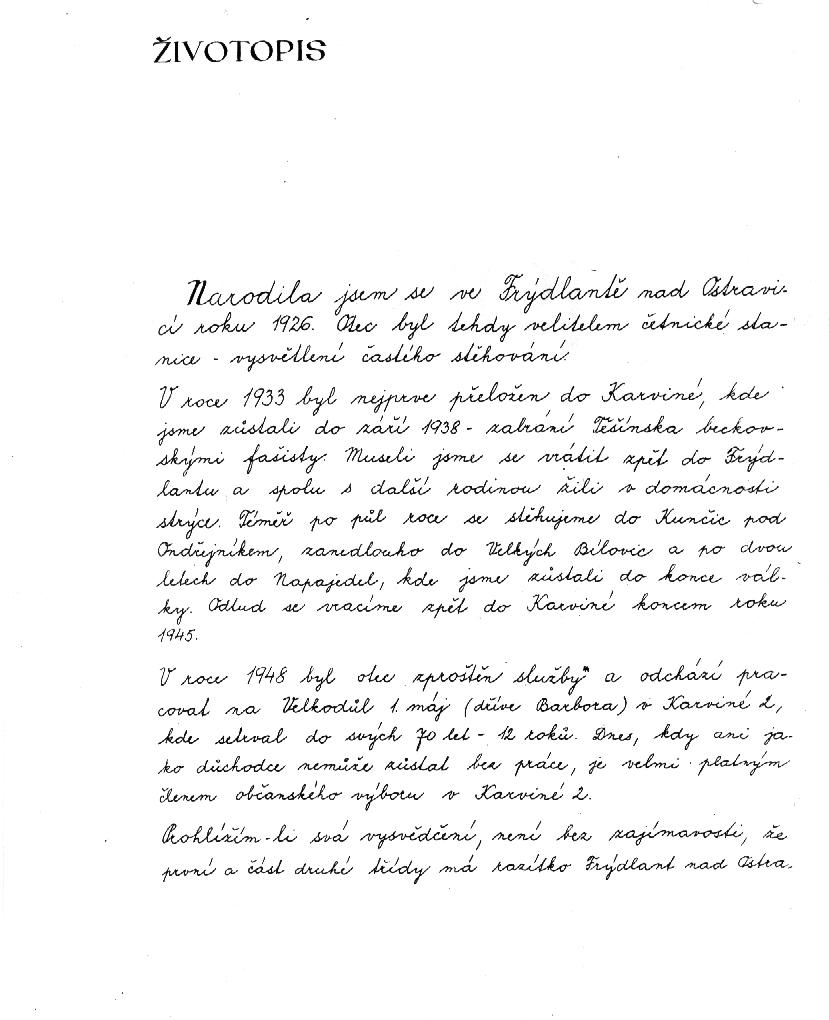 ŽIVOTOPIS
Narodila jsem se ve Frýdlantě nad Ostravi-
cí roku 1926. Otec byl tehdy velitelem četnické sta-
nice - vysvětlení častého stěhování.
V roce 1933 byl nejprve přeložen do Karviné, kde
jsme zůstali do září 1938 - zabrání Těšínska beckov-
skými fašisty. Museli jsme se vrátit zpět do Frýd-
lantu a spolu s další rodinou žili v domácnosti
strýce. Téměř po půl roce se stěhujeme do Kunčic pod
Ondřejníkem, zanedlouho do Velkých Bílovic a po dvou
letech do Napajedel, kde jsme zůstali do konce vál-
ky. Odtud se vracíme zpět do Karviné koncem roku
1945.
V roce 1948 byl otec zproštěn služby" a odchází pra-
covat na Velkodůl 1. máj (dříve Barbora) v Karviné 2,
kde setrval do svých 70 let - 12 roků. Dnes, kdy ani ja-
ko důchodce nemůže zůstat bez práce, je velmi platným
členem občanského výboru v Karviné 2.
Prohlížím-li svá vysvědčení, není bez zajímavosti, že
první a část druhé třídy má razítko Frýdlant nad Ostra-